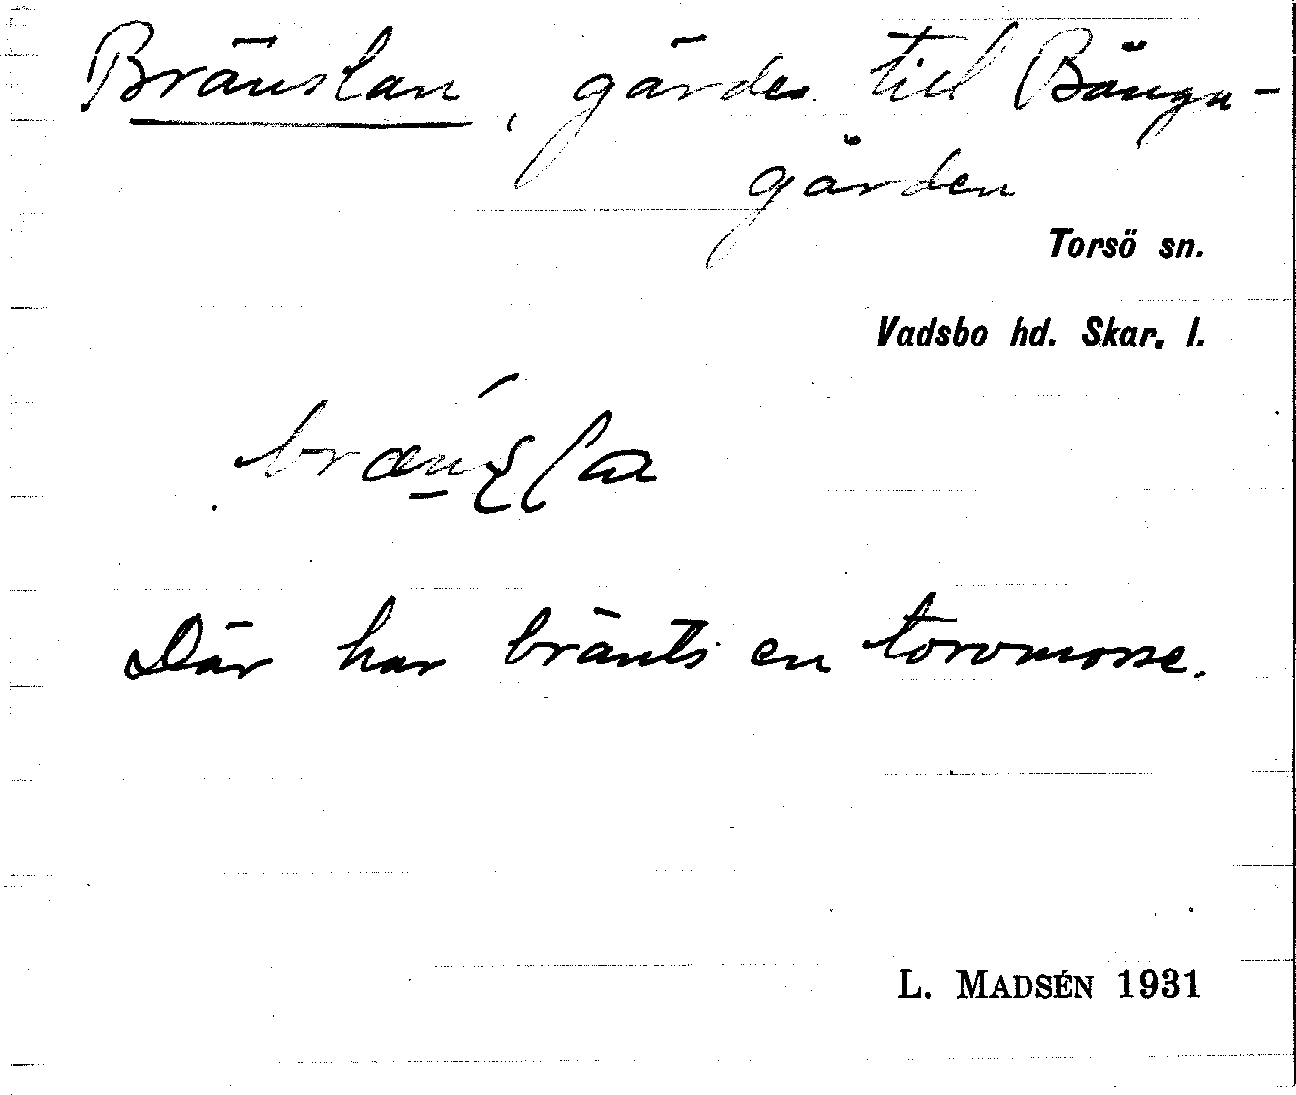 Bränslan, gärde till Bånga-
gården
Torsö sn.
Vadsbo hd. Skar. l.
Där har bränts en torvmosse.
L. MADSÉN 1931